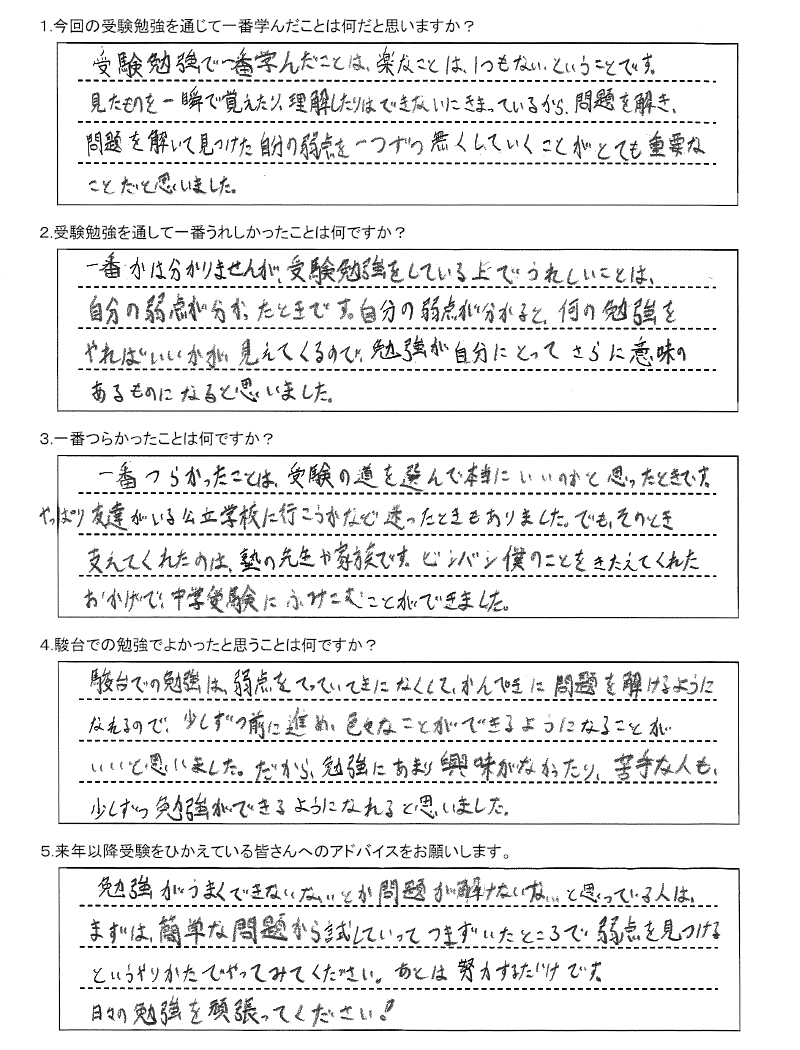 1.今回の受験勉強を通じて一番学んだことは何だと思いますか？
受験勉強で一番学んだことは、楽なことは、1つもないということです。
見たものを一瞬で覚えたり、理解したりはできないにきまっているから、問題を解き、
問題を解いて見つけた自分の弱点を一つずつ無くしていくことがとても重要な
ことだと思いました。
2.受験勉強を通して一番うれしかったことは何ですか？
一番かは分かりませんが、受験勉強をしている上でうれしいことは、
自分の弱点が分かったときです。自分の弱点が分かると、何の勉強を
やればいいかが、見えてくるので、勉強が自分にとってさらに意味の
あるものになると思いました。
3.一番つらかったことは何ですか？
一番つらかったことは、受験の道を選んで本当にいいのかと思ったときです。
やっぱり友達がいる公立学校に行こうかなど迷ったときもありました。でも、そのとき
支えてくれたのは、塾の先生や家族です。ビシバシ僕のことをきたえてくれた
おかげで、中学受験にふみこむことができました。
4.駿台での勉強でよかったと思うことは何ですか？
駿台での勉強は、弱点をてっていてきになくして、かんぺきに問題を解けるように
なれるので、少しずつ前に進め、色々なことができるようになることが
いいと思いました。だから、勉強にあまり興味がなかったり、苦手な人も、
少しずつ勉強ができるようになれると思いました。
5.来年以降受験をひかえている皆さんへのアドバイスをお願いします。
勉強がうまくできないな…とか問題が解けないな…と思っている人は、
まずは、簡単な問題から試していってつまずいたところで弱点を見つける
というやりかたでやってみてください。あとは努力するだけです。
日々の勉強を頑張ってください！